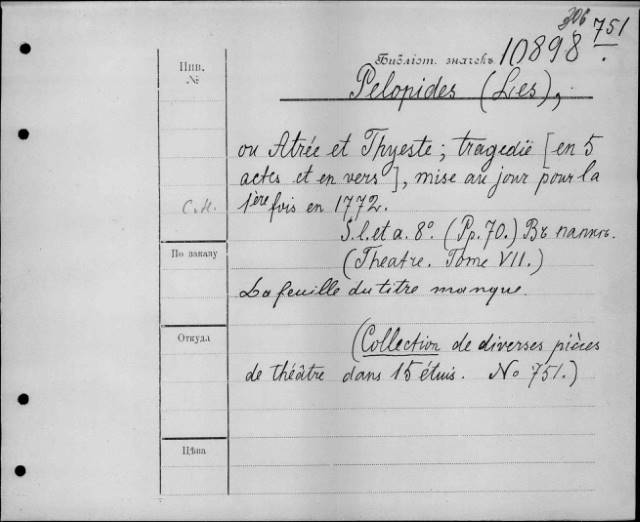 306
751
Библіот. значекъ 10898.
Инв.
№
Pelopides (Les),
ou Atrée et Thyeste; tragedie [en 5
actes et en vers], mise au jour pour la
1ère fois en 1772.
С.Н.
S. l. et a. 8°. (Pp. 70.) Въ папкѣ.
По заказу
(Theatre. Tome VII.)
La feuille du titre manque.
Откуда
(Collection de diverses pièces
de théâtre dans 15 étuis. No 751.)
Цѣна